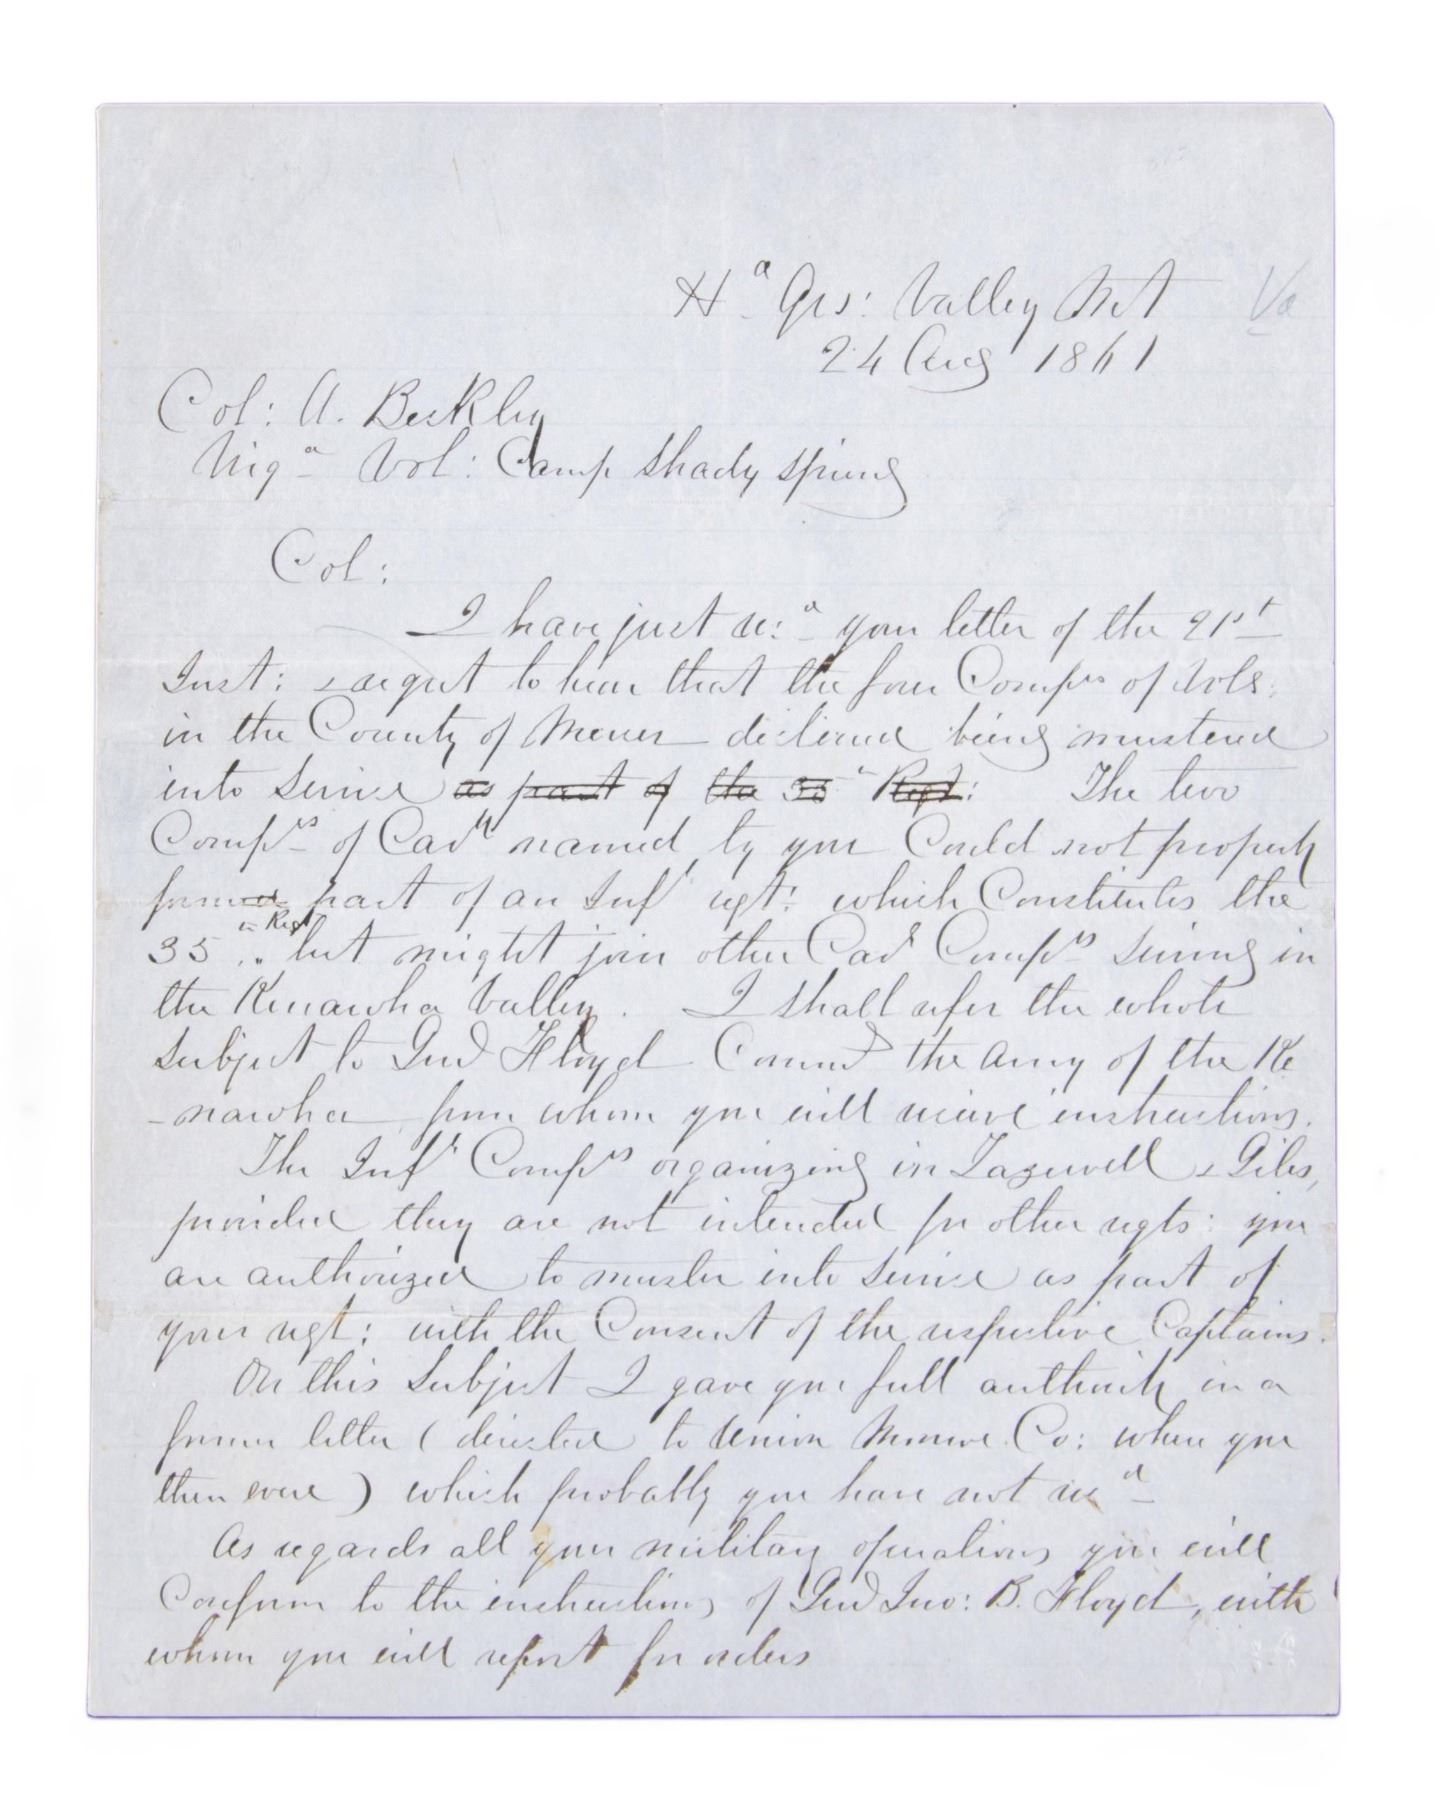 Hd Qrs: Valley Mt Va
24 Aug 1861
Col: A. Beckley
Virga Vol: Camp Shady Spring
Col:
I have just recd your letter of the 21st
Inst: & regret to hear that the four Comps of Vols:
in the County of Mercer declined being mustered
into Service as part of the 35 Regt: The two
Comps of Cavy named by you Could not properly
formed part of an Infy regt: which Constitutes the
35 " Regt but might join other Cavy Comps serving in
the Kenawha Valley. I shall refer the whole
Subject to Genl Floyd Commd the army of the Ke
-nawha from whom you will receive instructions.
The Infy Comps organizing in Tazewell & Giles,
provided they are not intended for other regts: you
are authorized to muster into Service as part of
your regt: with the Consent of the respective Captains.
On this Subject I gave you full authority in a
former letter (directed to Union Monroe Co: where you
then were) which probably you have not recd
As regards all your military operations you will
Conform to the instructions of Genl Jno: B. Floyd, with
whom you will report for orders